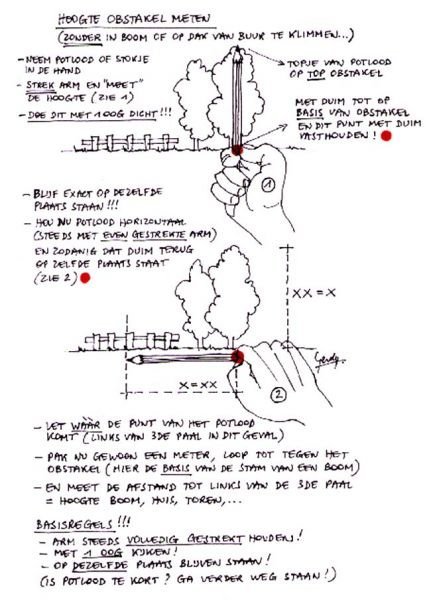 HOOGTE OBSTAKEL METEN
(ZONDER IN BOOM OF OP DAK VAN BUUR TE KLIMMEN...)
- NEEM POTLOOD OF STOKJE
IN DE HAND
- STREK ARM EN "MEET"
DE HOOGTE (ZIE 1)
- DOE DIT MET 1 OOG DICHT!!!
TOPJE VAN POTLOOD
OP TOP OBSTAKEL
MET DUIM TOT OP
BASIS VAN OBSTAKEL
EN DIT PUNT MET DUIM
VASTHOUDEN!
1
- BLIJF EXACT OP DEZELFDE
PLAATS STAAN!!!
- HOU NU POTLOOD HORIZONTAAL
(STEEDS MET EVEN GESTREKTE ARM)
EN ZODANIG DAT DUIM TERUG
OP ZELFDE PLAATS STAAT
(ZIE 2)
XX = X
X = XX
2
- LET WÀÀR DE PUNT VAN HET POTLOOD
KOMT (LINKS VAN 3DE PAAL IN DIT GEVAL)
- PAK NU GEWOON EEN METER, LOOP TOT TEGEN HET
OBSTAKEL (HIER DE BASIS VAN DE STAM VAN EEN BOOM)
- EN MEET DE AFSTAND TOT LINKS VAN DE 3DE PAAL
= HOOGTE BOOM, HUIS, TOREN,...
BASISREGELS!!!
- ARM STEEDS VOLLEDIG GESTREKT HOUDEN!
- MET 1 OOG KIJKEN!
- OP DEZELFDE PLAATS BLIJVEN STAAN!
(IS POTLOOD TE KORT? GA VERDER WEG STAAN!)